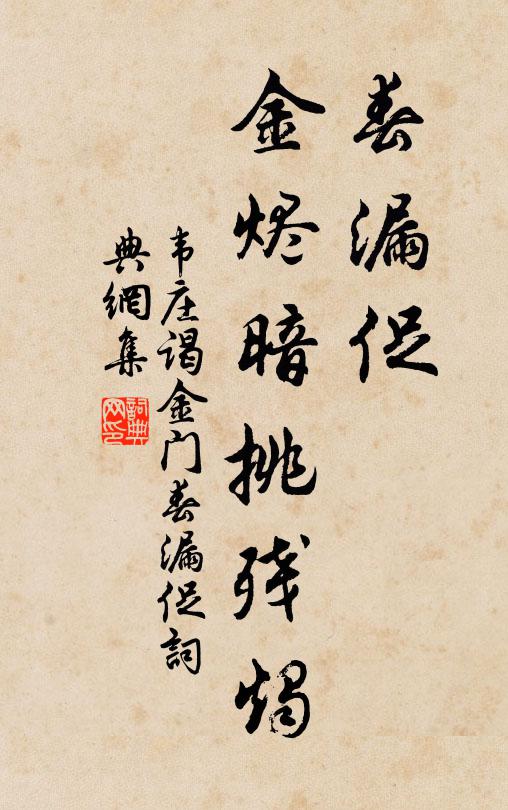 春漏促
金烬暗挑残烛
韦庄谒金门春漏促詞
典網集
詞典网印